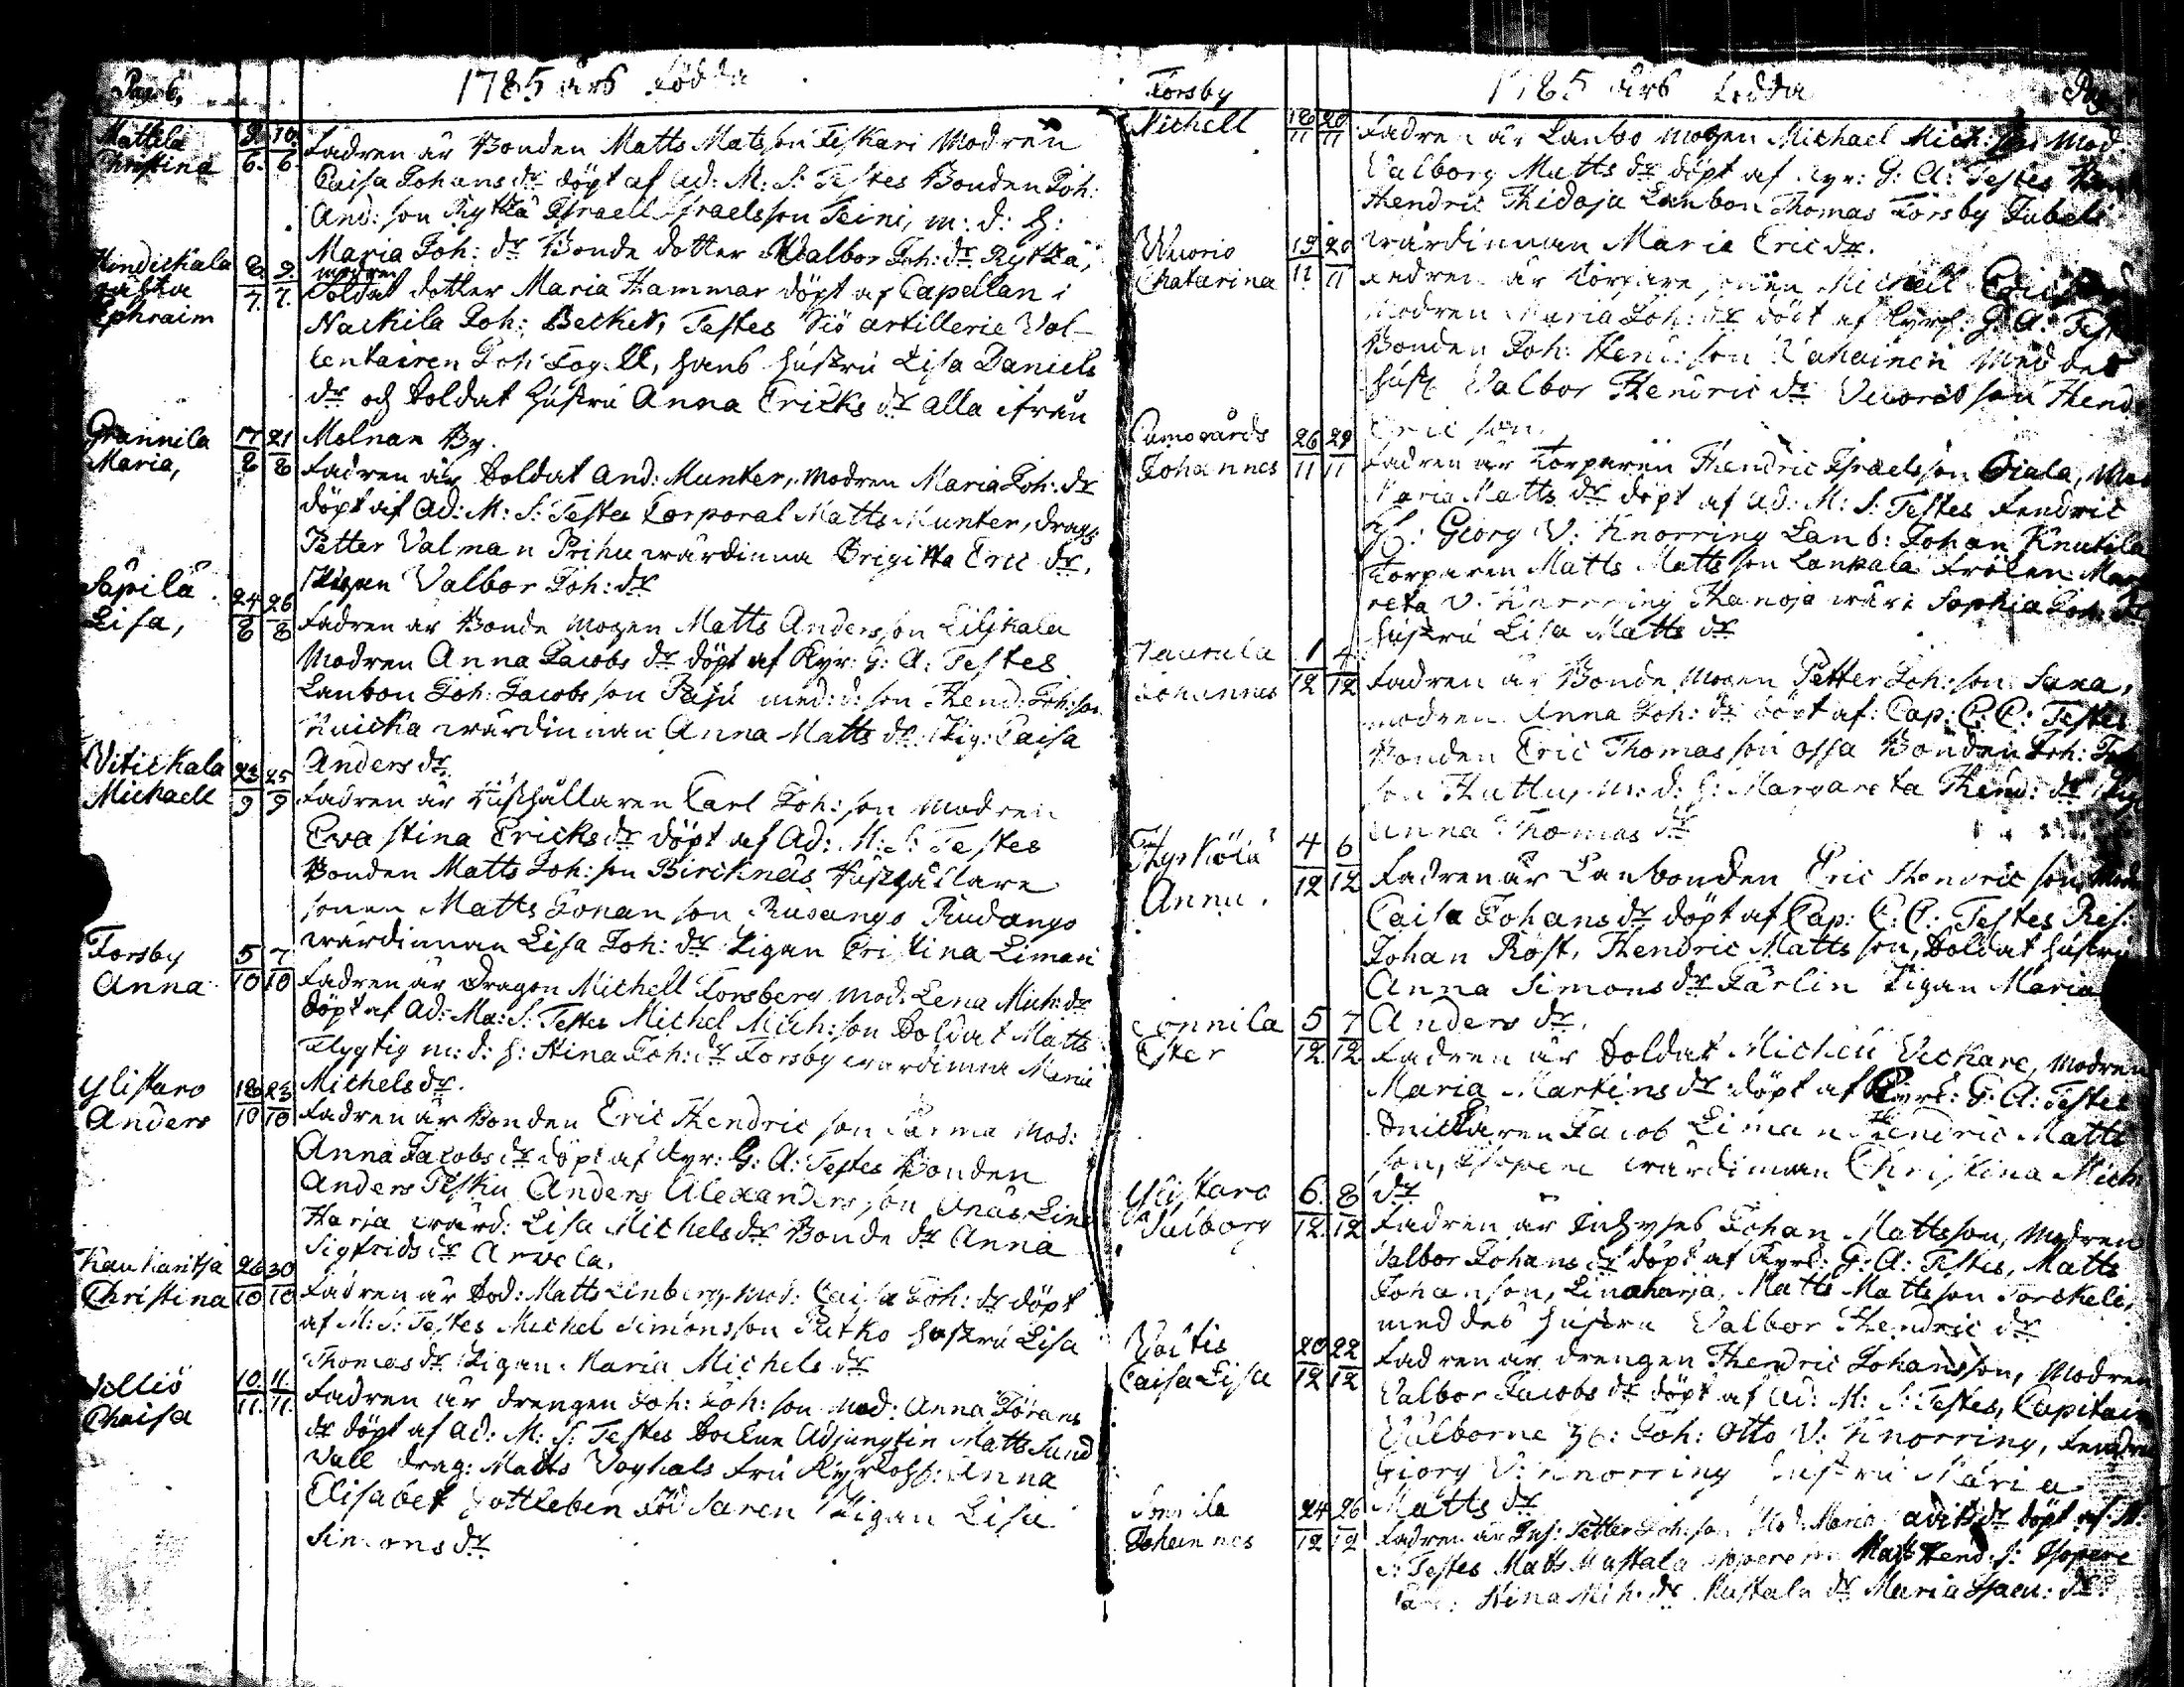 Pag 6.
1785 års födda
Mattila 9/6. 10/6. Fadren är Bonden Matts Matsson Teskari Modren
Christina Caisa Johans dr döpt af Ad: M: S: Testes Bonden Joh:
And: son Rykkä Israell Israelsson Seini, m: d: h:
Maria Joh: dr Bonde dotter Walbor Joh: dr Rykkä,
Hindickala 8/7. 9/7. modren
Soldat dotter Maria Hammar döpt af Capellan i
Ephraim
Nackila Joh: Becker, Testes Siö artillerie Vol-
lentairen Joh: Fogell, hans hustru Lisa Daniels
dr och Soldat hustru Anna Ericks dr alla ifrån
Grannila 17/8 21/8 Molnan By.
Maria, Fadren är Soldat And: Munter, Modren Maria Joh: dr
döpt af Ad: M: S: Testes Corporal Matts Munter, drag:
Petter Valman Prihu wärdinna Brigitta Eric dr.
Pigan Valbor Joh: dr
Säpilä 24/8 26/8
Lisa, Fadren är Bonde Mogen Matts Andersson Lilikala
Modren Anna Jacobs dr döpt af Kyr: G: A: Testes
Lanbon Joh: Jacobs son Paju med: d: son Hend: Joh: son
Knicka wärdinnan Anna Matts dr. Pig: Caisa
Witickala 23/9 25/9 Anders dr.
Michaell Fadren är Hushållaren Carl Joh: son Modren
Eva Stina Ericks dr döpt af Ad: M: S: Testes
Bonden Matts Joh: son Bircknäs Hushållare
sonen Matts Johan son Rusango
wärdinnan Lisa Joh: dr Pigan Cristina Liman
Forsby 5/10 7/10
Anna Fadren är Dragon Michell Forsberg Mod: Lena Mich: dr
döpt af Ad: Ma: S: Testes Michel Mich: son Soldat Matts
Flygtig m: d: h: Stina Joh: dr Forsby wärdinna Maria
Ylistaro 18/10 23/10 Michels dr.
Anders Fadren är Bonden Eric Hendric son Mod:
Anna Jacobs dr döpt af Kyr: G: A: Testes Bonden
Anders Anders Alexanders son Anäs Lina
Harja wärd: Lisa Michels dr Bonde dr Anna
Sigfrids dr Arvela.
Kaukaritsa 26/10 30/10
Christina Fadren är Sod: Matts Linberg, Mod: Caisa Joh: dr döpt
af M: S: Testes Michel Simonsson Putko hustru Lisa
Thomas dr Pigan Maria Michels dr
10/11. 11/11.
Chaisa Fadren är drengen Joh: Joh: son Mod: Anna Jörans
dr döpt af Ad: M: S: Testes Adjungtin Matts Sund
Wall drag: Matts Woghals fru Kyrkohs: Anna
Elisabet Gottleben Pigan Lisa
Simons dr
1785 års födda
Forsby
Michell 18/11 20/11 Fadren är Lanbo Mogen Michael Mich: son Mod:
Valborg Matts dr döpt af Kyr: G: A: Testes
Hendric Hidoja Lanbon Thomas Forsby
wärdinnan Maria Eric dr.
Wuorio 19/11 20/11
Chatarina Fadren är Torpare Michell
Modren Maria Joh: dr döpt af Kyrh: G: A: Test
Bonden Joh: Hend: son med des
hust Valbor Hendric dr Hend
Eric son.
26/11 29/11
Johannes Fadren är Torparen Hendric Israelsson
Maria Matts dr döpt af Ad: M: S: Testes Fendric
H: Georg V: Knorring Lanb: Johan Knutila
Torparen Matts Matts son Lankala Frölen Mar
reta V: Knorring Hanoja wär: Sophia Joh: dr
hustru Lisa Matts dr
Taurula 1/12 4/12
Johannes Fadren är Bonde Mogen Petter Joh: son
modren Anna Joh: dr döpt af: Cap: C: C: Testes
Bonden Eric Thomasson Ossa Bonden Joh:
son Huttu, m: d: h: Margareta Hend: dr Pig
Anna Thomas dr
Hyrkölä 4/12 6/12
Anna. Fadren är Lanbonden Eric Hendric son
Caisa Johans dr döpt af Cap: C: C: Testes
Johan Rost, Hendric Matts son, Soldat hustru
Anna Simons dr Färlin Pigan Maria
5/12. 7/12. Anders dr.
Ester Fadren är Soldat Michell Modren
Maria Martins dr döpt af Kyrk: G: A: Testes
Snickaren Jacob Liman Hendric Matts
son, wärdinnan Christina Mich
Ylistaro 6./12. 8/12 dr
Valborg Fadren är Inhyses Johan Mattsson, Modren
Valbor Johans dr döpt af Kyrk: G: A: Testes, Matts
Johanson, Linaharja, Matts Mattsson Torckeli,
med des hustru Valbor Hendric dr
Woitis 20/12 22/12
Caisa Lisa Fadren är drengen Hendric Johansson, Modren
Valbor Jacobs dr döpt af Ad: M: S: Testes, Capitain
Wälborne H: Joh: Otto V: Knorring, Fendric
Giorg V: Knorring hustru Maria
24/12 26/12 Matts dr
Johannes Fadren är Inh: Petter Joh: son Mod: Maria dr döpt af M:
S: Testes Matts Mustala Hend: S:
Stina Mich: dr Mustala dr Maria dr